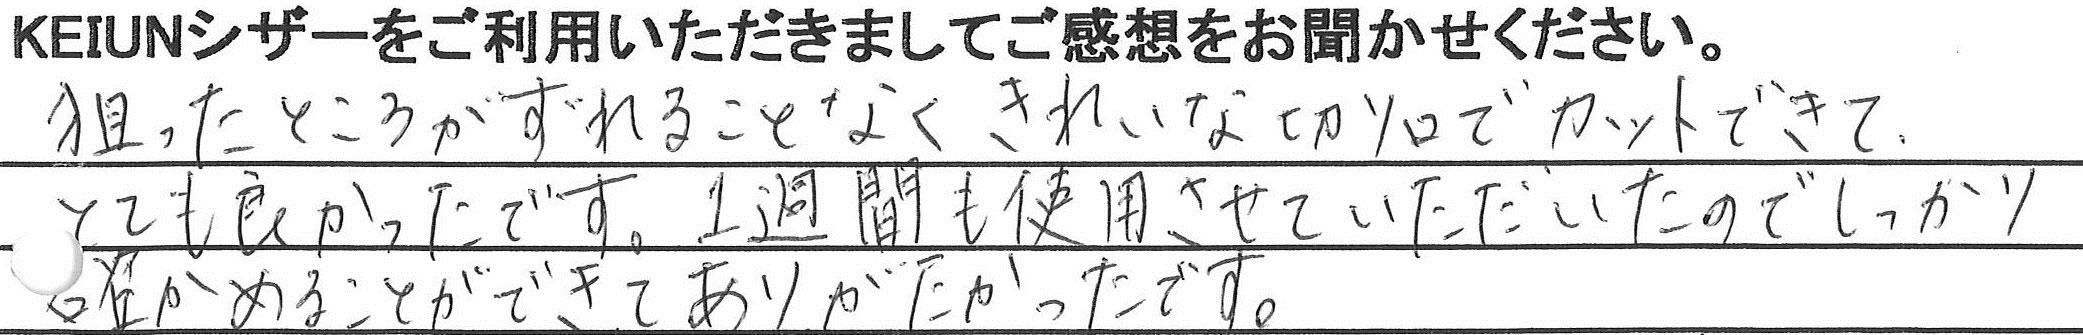 KEIUNシザーをご利用いただきましてご感想をお聞かせください。
狙ったところがずれることなくきれいな切り口でカットできて、
とても良かったです。1週間も使用させていただいたのでしっかり
確かめることができてありがたかったです。